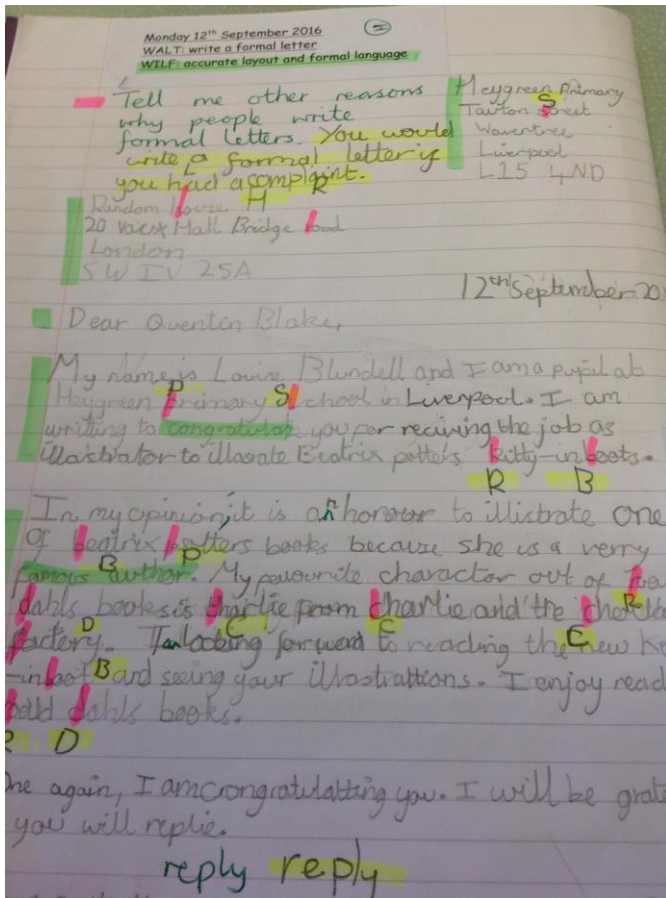 Monday 12th September 2016
WALT: write a formal letter
WILF: accurate layout and formal language
Tell me other reasons
why people write
formal letters. You would
write a formal letter if
you had a complaint.
Heygreen Primary
Tawton street
S
Wavertree
Liverpool
L15 4ND
Random house
H R
20 Vaux Hall Bridge road
London
SW1V 2SA
12th September 20
Dear Quentin Blake,
My name is Louise Blundell and I am a pupil at
P S
Heygreen primary school in Liverpool. I am
writting to congratulate you for reciving the job as
illastrator to illasrate Beatrix potters kitty-in-boots.
R B
In my opinion, it is an honour to illistrate one
of beatrix potters books because she is a verry
B P
famous author. My favourite character out of
R
dahls books is charlie from charlie and the
D C C C
factory. I am looking forward to reading the new
-in-boot B and seing your illastrattions. I enjoy read
dahls books.
D
One again, I am congratulatting you. I will be grat
you will replie.
reply reply